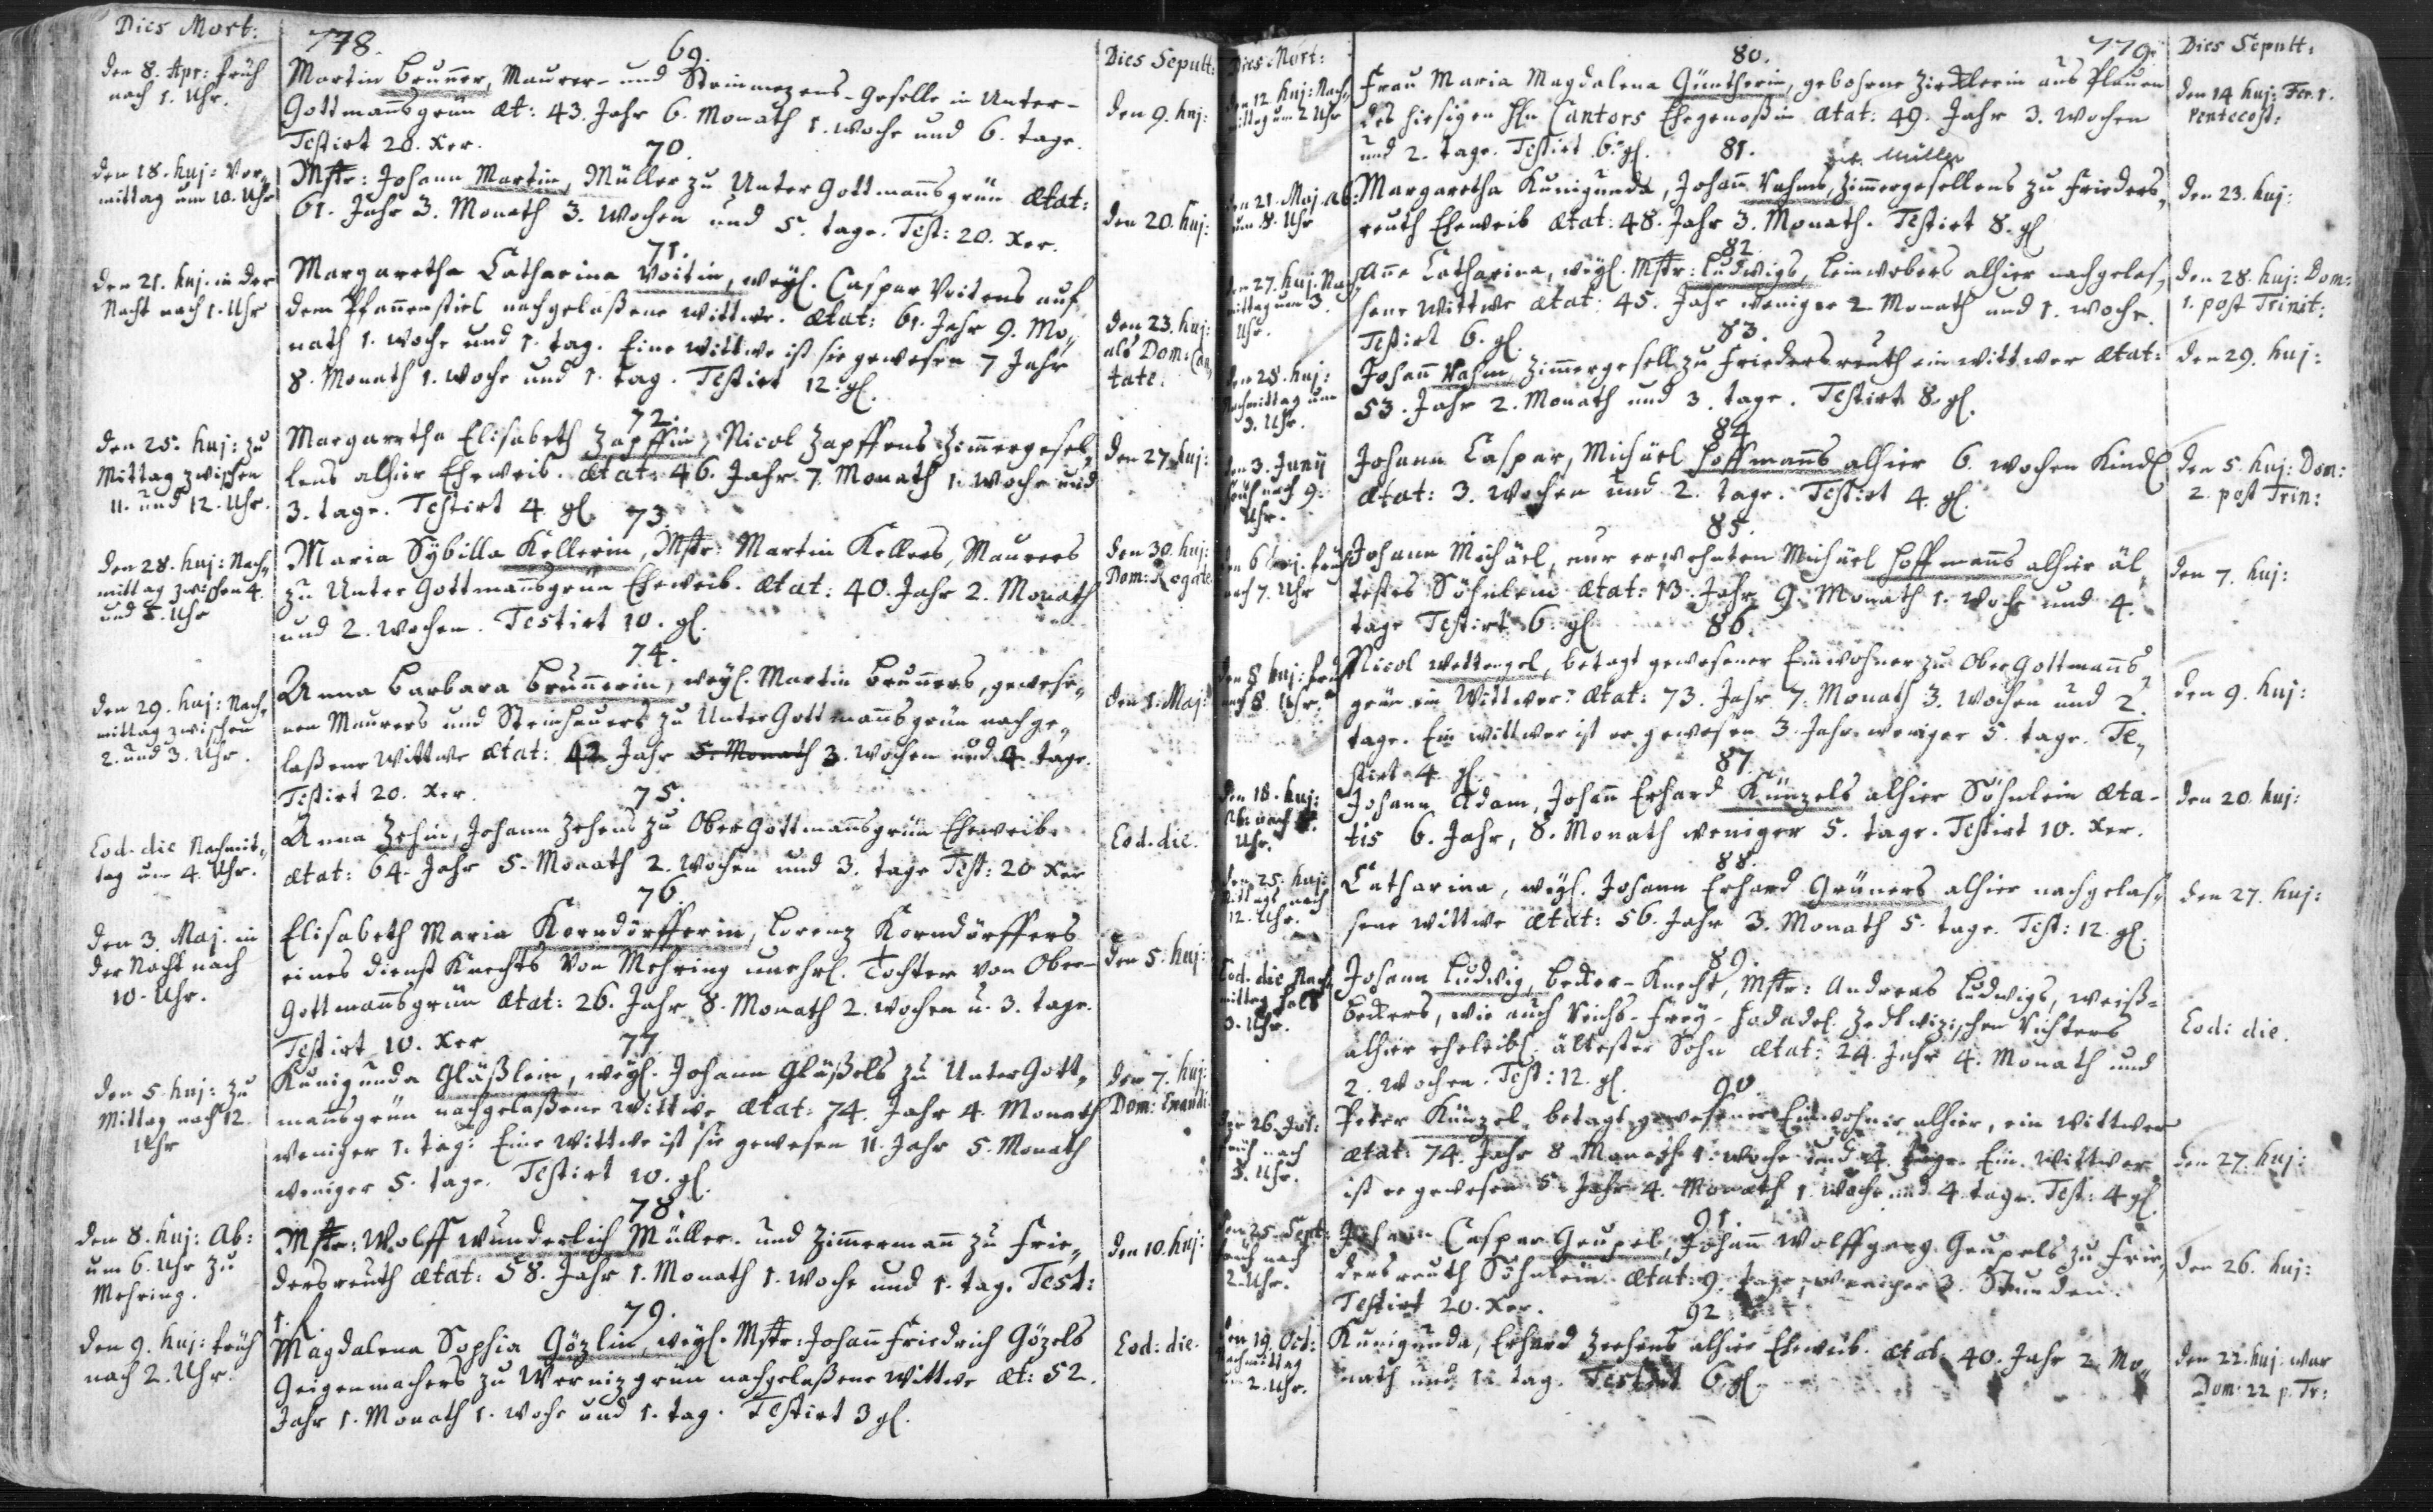 778.
Dies Mort:
Dies Sepult:
69.
den 8. Apr: früh
nach 1. Uhr.
Martin Brunner, Maurer- und Steinmezens-Geselle in Unter-
Gottmannsgrün æt: 43. Jahr 6. Monath 1. Woche und 6. tage.
Testirt 20. Xer.
den 9. huj:
70.
den 18. huj: Vor-
mittag um 10. Uhr
Mstr: Johann Martin, Müller zu Unter Gottmannsgrün ætat:
61. Jahr 3. Monath 3. Wochen und 5. tage. Test: 20. Xer.
den 20. huj:
71.
den 21. huj. in der
Nacht nach 1. Uhr
Margaretha Catharina Voitin, weyl. Caspar Voitens auf
dem Pfannenstiel nachgelaßene Wittwe. ætat: 61. Jahr 9. Mo-
nath 1. Woche und 1. tag. Eine Wittwe ist sie gewesen 7 Jahr
8. Monath 1. Woche und 1. tag. Testirt 12. gl.
den 23. huj:
als Dom: Can-
tate.
72.
den 25. huj: zu
Mittag zwischen
11. und 12. Uhr.
Margaretha Elisabeth Zapffin, Nicol Zapffens Zimmergesel-
lens alhier Eheweib. ætat: 46. Jahr 7. Monath 1. Woche und
3. tage. Testirt 4. gl.
den 27. huj:
73.
den 28. huj: Nach-
mittag zwischen 4.
und 5. Uhr
Maria Sybilla Kellerin, Mstr: Martin Kellers, Maurers
zu Unter Gottmannsgrün Eheweib. ætat: 40. Jahr 2. Monath
und 2. Wochen. Testirt 10. gl.
den 30. huj:
Dom: Rogate
74.
den 29. huj: Nach-
mittag zwischen
2. und 3. Uhr.
Anna Barbara Brunnerin, weyl. Martin Brunners, gewese-
nen Maurers und Steinhauers zu Unter Gottmannsgrün nachge-
laßene Wittwe ætat: 42 Jahr 5. Monath 3. Wochen und 4. tage.
Testirt 20. Xer.
den 1. Maj:
75.
Eod. die Nachmit-
tag um 4. Uhr.
Anna Zehin, Johann Zehens zu Ober Gottmannsgrün Eheweib.
ætat: 64. Jahr 5. Monath 2. Wochen und 3. tage Test: 20 Xer
Eod. die.
76.
den 3. Maj. in
der Nacht nach
10. Uhr.
Elisabeth Maria Korndörfferin, Lorenz Korndörffers
eines Dienst Knechts von Mehring unehrl. Tochter von Ober-
Gottmannsgrün ætat: 26. Jahr 8. Monath 2. Wochen u. 3. tage.
Testirt 10. Xer
den 5. huj:
77.
den 5. huj: zu
Mittag nach 12
Uhr
Kunigunda Gläßlein, weyl. Johann Gläßels zu Unter Gott-
mannsgrün nachgelaßene Wittwe ætat: 74. Jahr 4. Monath
weniger 1. tag: Eine Wittwe ist sie gewesen 11. Jahr 5. Monath
weniger 5. tage. Testirt 10. gl.
den 7. huj:
Dom: Exaudi
78.
den 8. huj: Ab:
um 6. Uhr zu
Mehring.
Mstr: Wolff Wunderlich Müller und Zimmermann zu Frie-
dersreuth ætat: 58. Jahr 1. Monath 1. Woche und 1. tag. Test:
1. f.
den 10. huj:
79.
den 9. huj: früh
nach 2. Uhr.
Magdalena Sophia Gözlin, weyl. Mstr: Johann Friedrich Gözels
Geigenmachers zu Wernizgrün nachgelaßene Wittwe æt: 52.
Jahr 1. Monath 1. Woche und 1. tag. Testirt 3 gl.
Eod: die.
779.
Dies Mort:
Dies Sepult:
80.
den 12 huj: Nach-
mittag um 2 Uhr
Frau Maria Magdalena Güntherin, gebohrne Zirklerin aus Plauen
des hiesigen Hln Cantors Ehegenoßin ætat: 49. Jahr 3. Wochen
und 2. tage. Testirt 6. gl.
den 14 huj: Fer. 1.
Pentecost:
81.
geb. Müller
den 21. Maj. Ab:
um 8. Uhr
Margaretha Kunigunda, Johann Rahms, Zimmergesellens zu Frieders-
reuth Eheweib ætat: 48. Jahr 3. Monath. Testirt 8. gl
den 23. huj:
82.
den 27. huj. Nach-
mittag um 3.
Uhr.
Anna Catharina, weyl. Mstr: Ludwigs, Leinwebers alhier nachgelas-
sene Wittwe ætat: 45. Jahr weniger 2 Monath und 1. Woche.
Testirt 6. gl.
den 28. huj: Dom:
1. post Trinit:
83.
den 28. huj:
Nachmittag um
3. Uhr.
Johann Rahm, Zimmergesell zu Friedersreuth ein Wittwer ætat:
53. Jahr 2. Monath und 3. tage. Testirt 8. gl.
den 29. huj:
84
den 3. Junij
früh nach 9.
Uhr.
Johann Caspar, Michäel Hoffmanns alhier 6. Wochen Kindl
ætat: 3. Wochen und 2. tage. Testirt 4. gl.
den 5. huj: Dom:
2. post Trin:
85.
den 6 huj. früh
nach 7. Uhr
Johann Michäel, nur erwehnten Michäel Hoffmanns alhier äl-
testes Söhnlein ætat: 13. Jahr 9. Monath 1. Woche und 4.
tage Testirt 6. gl
den 7. huj:
86.
den 8 huj: früh
nach 8. Uhr.
Nicol Wettengel, betagt gewesener Einwohner zu Ober Gottmanns-
grün ein Wittwer. ætat: 73. Jahr 7. Monath 3. Wochen und 2.
tage. Ein Wittwer ist er gewesen 3. Jahr weniger 5. tage. Te-
stirt 4 gl.
den 9. huj:
87.
den 18. huj:
Ab: nach
Uhr.
Johann Adam, Johann Erhard Künzels alhier Söhnlein æta-
tis 6. Jahr, 8. Monath weniger 5. tage. Testirt 10. Xer.
den 20. huj:
88.
den 25. huj:
Mittags nach
12. Uhr.
Catharina, weyl. Johann Erhard Grüners alhier nachgelas-
sene Wittwe ætat: 56. Jahr 3. Monath 5. tage. Test: 12. gl.
den 27. huj:
89.
Eod. die Nach-
mittag halb
3. Uhr.
Johann Ludwig, Becker-Knecht, Mstr: Andreas Ludwigs, weiß-
beckers, wie auch Reichs-Frey-Hochadel. Zedtwizischen Richters
alhier eheleibl. ältester Sohn ætat: 24. Jahr 4. Monath und
2. Wochen. Test: 12. gl.
Eod: die.
90.
den 26.
früh nach
8. Uhr.
Peter Künzel, betagt gewesener Einwohner alhier, ein Wittwer
ætat: 74. Jahr 8 Monath 1. Woche und 4. tage. Ein Wittwer
ist er gewesen 5 Jahr 4. Monath 1. Woche und 4. tage. Test: 4 gl.
den 27. huj:
91.
den 25. Sept:
früh nach
2. Uhr.
Johann Caspar Geupel, Johann Wolffgang Geupels zu Frie-
dersreuth Söhnlein ætat: 9. tage, weniger 3. Stunden.
Testirt 20. Xer.
den 26. huj:
92.
den 19. Oct:
Nachmittag
um 2. Uhr.
Kunigunda, Erhard Zeehens alhier Eheweib. ætat: 40. Jahr 2 Mo-
nath und 1. tag. Testirt 6. gl.
den 22. huj. war
Dom: 22 p. Tr: